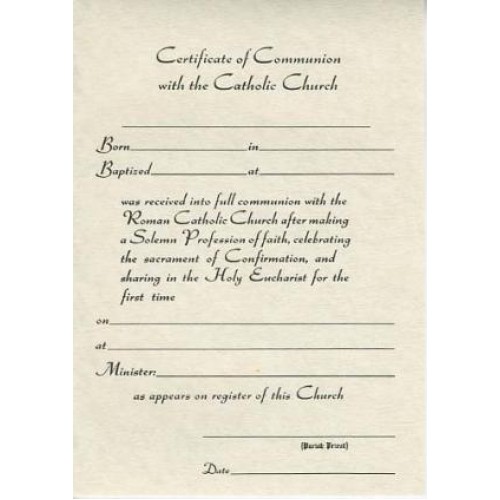 Certificate of Communion
with the Catholic Church
Born in
Baptized at
was received into full communion with the
Roman Catholic Church after making
a Solemn Profession of faith, celebrating
the sacrament of Confirmation, and
sharing in the Holy Eucharist for the
first time
on
at
Minister:
as appears on register of this Church
(Parish Priest)
Date